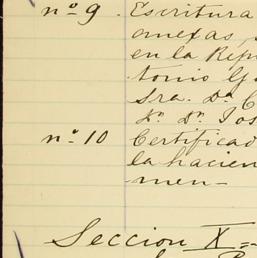 nº 9. Escritura
anexas,
en la Rep
tonio G
Sra. Dª C
Dr. Dn. Jos
nº 10 Certificad
la hacien
men-
Seccion X=